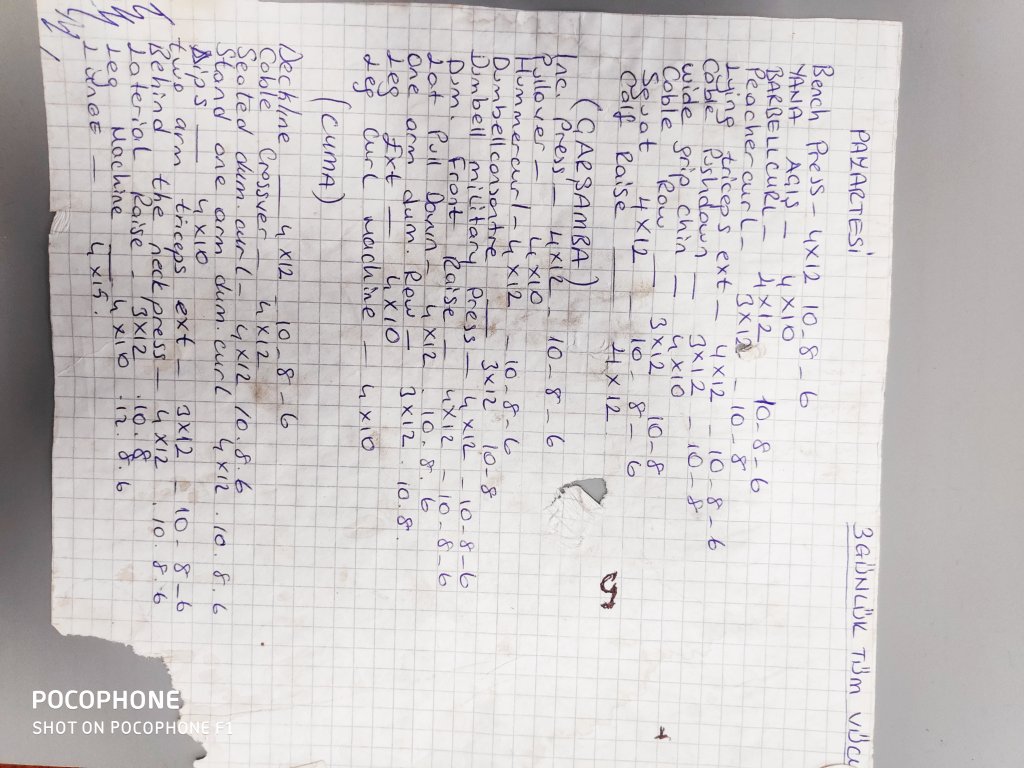 PAZARTESİ
3 GÜNLÜK TÜM VÜCU
Bench Press - 4x12 10-8-6
YANA AÇIŞ - 4x10
BARBELLCURL - 4x12 10-8-6
Peacher curl - 3x12 - 10-8
Lying triceps ext - 4x12 - 10-8-6
Cable Pushdown - 3x12 - 10-8
Wide grip chin - 4x10
Cable Row - 3x12 10-8
Squat 4x12 - 10-8-6
Calf Raise - 4x12
(ÇARŞAMBA)
Inc. Press - 4x12 - 10-8-6
Pullover - 4x10
Hummercurl - 4x12 - 10-8-6
Dumbellconsantre - 3x12 10-8
Dumbell military Press - 4x12 - 10-8-6
Dum. Front Raise - 4x12 - 10-8-6
Lat Pull Down - 4x12 - 10.8.6
One arm dum. Row - 3x12. 10.8.
Leg Ext - 4x10
Leg Curl machine - 4x10
(CUMA)
Deckline - 4x12 - 10-8-6
Cable Crossver - 4x12
Seated dum curl - 4x12 10.8.6
Stand one arm dum. curl 4x12.10.8.6
Dips - 4x10
Two arm triceps ext - 3x12 - 10-8-6
Behind the neck press - 4x12.10.8.6
Laterial Raise - 3x12 .10.8
Leg Machine - 4x10 .12.8.6
Lunge - 4x15.
5
POCOPHONE
SHOT ON POCOPHONE F1